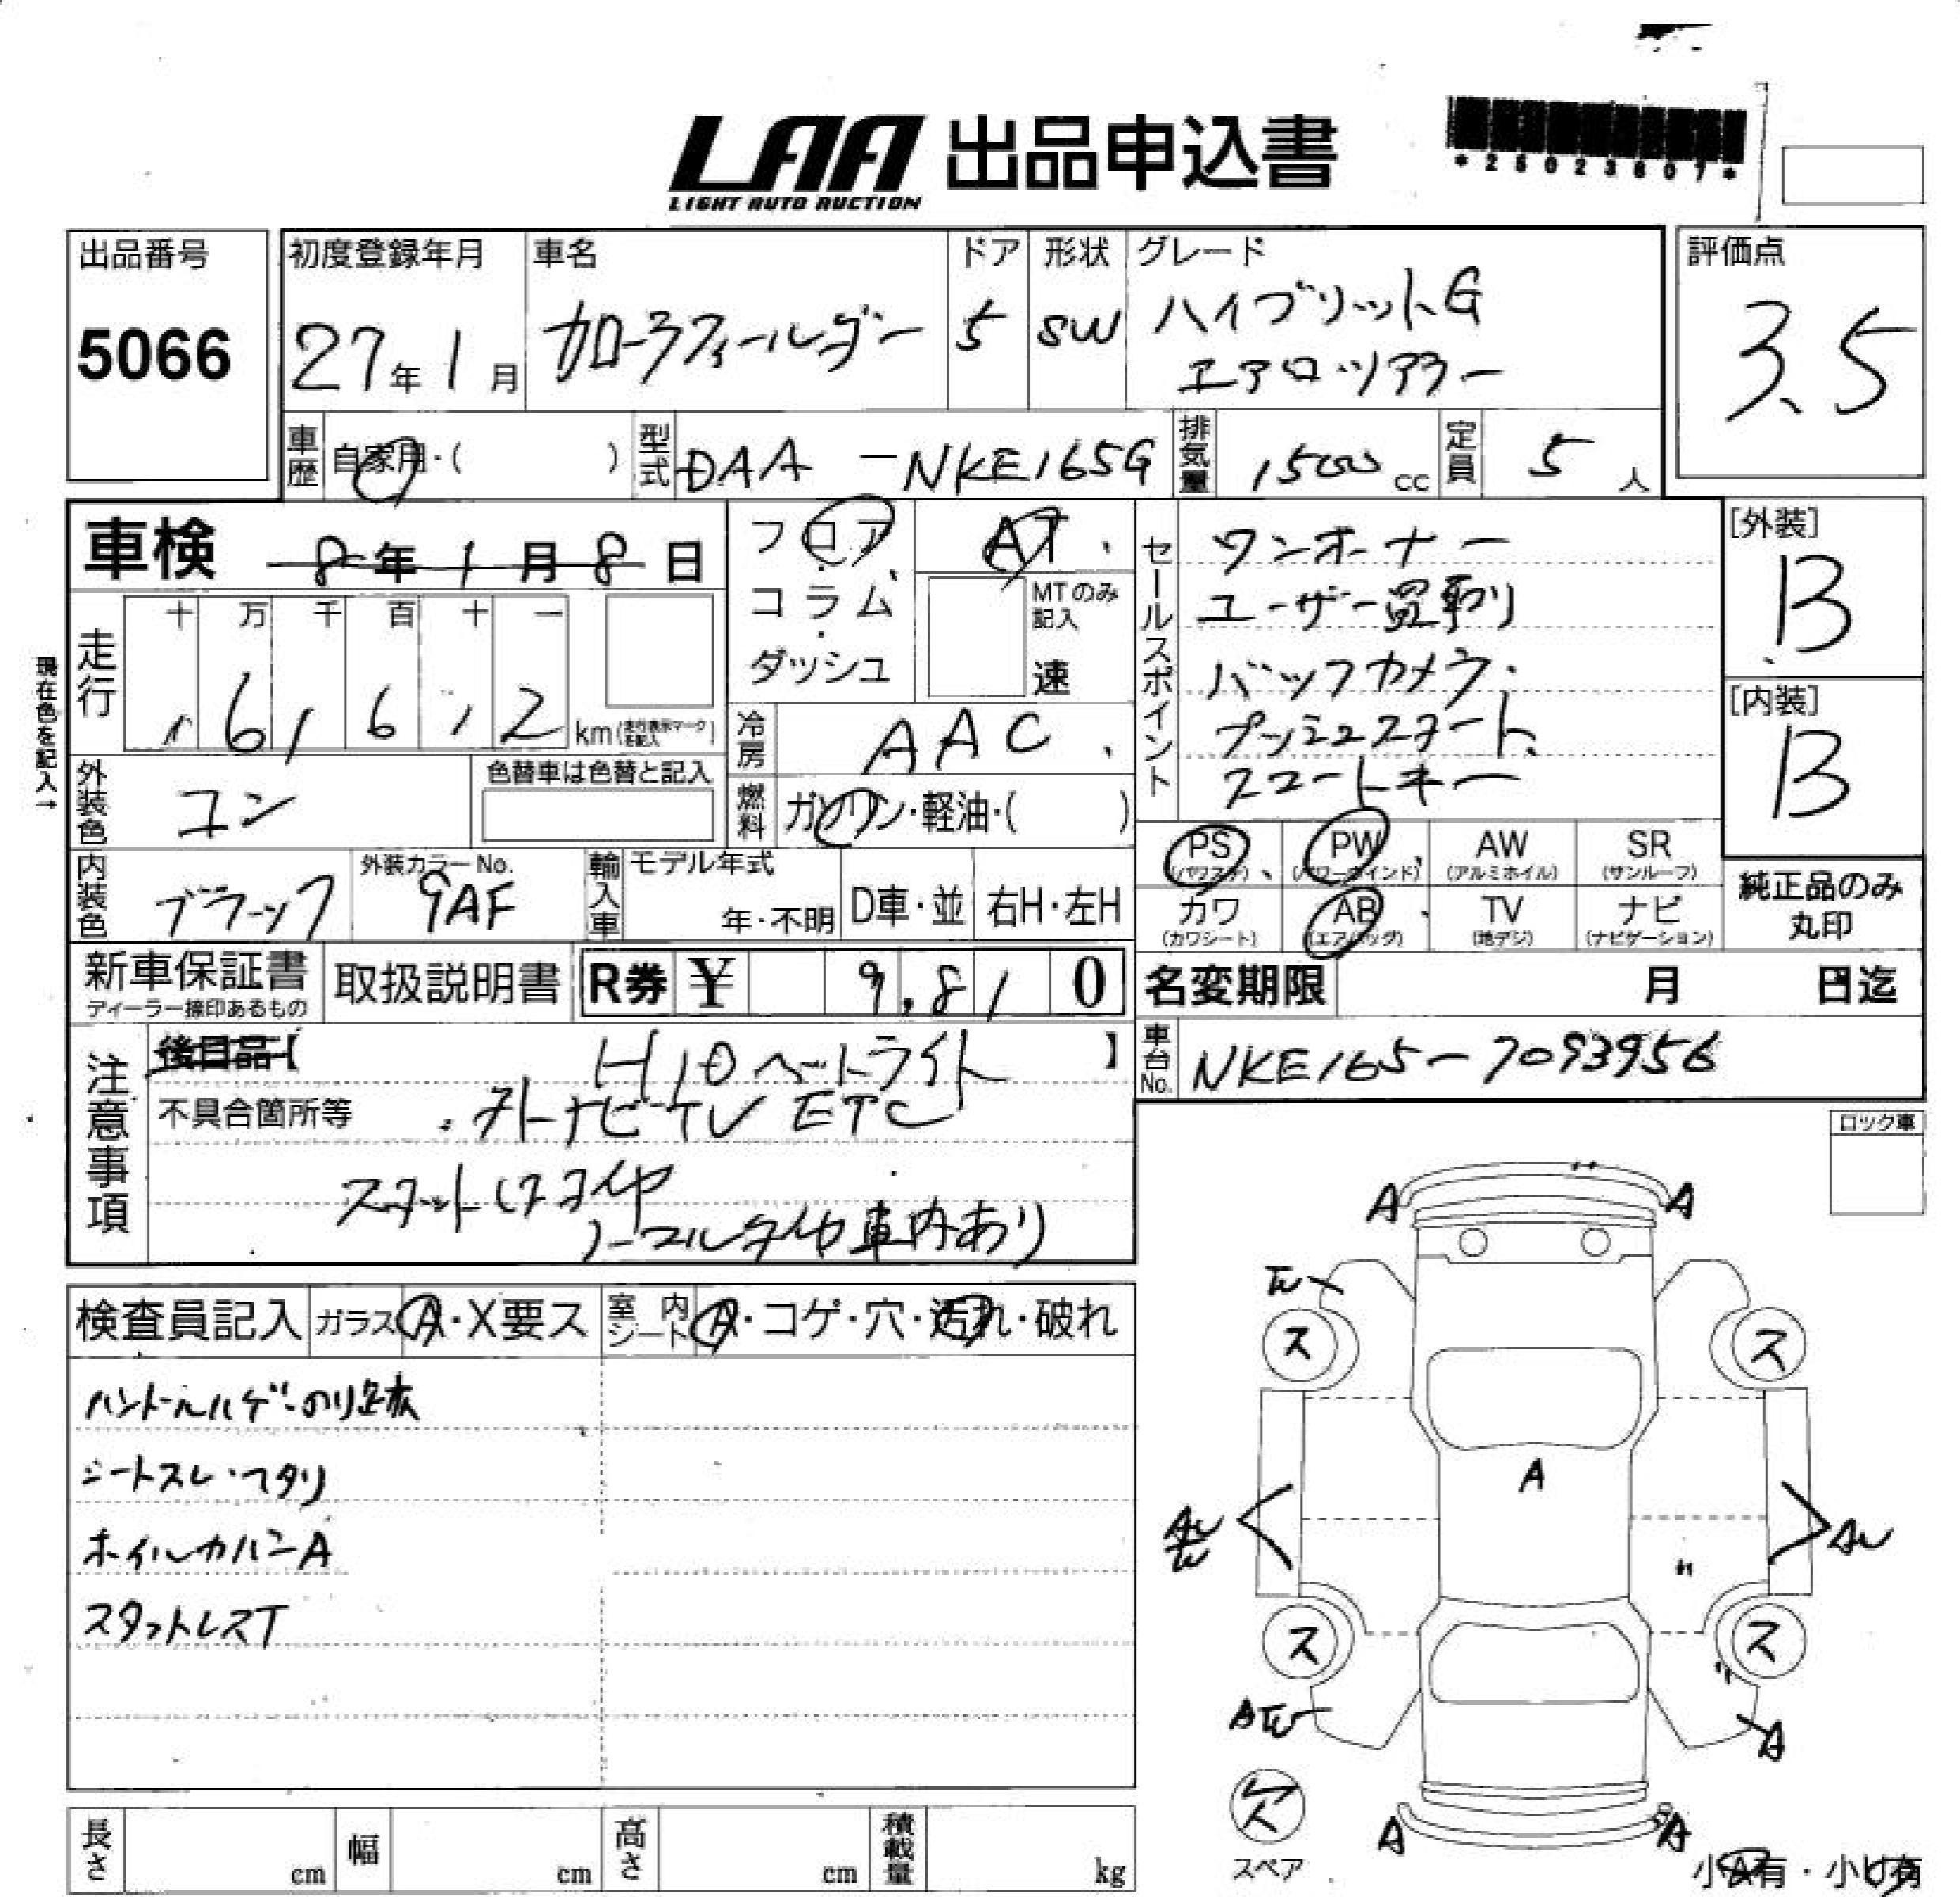 LAA 出品申込書
LIGHT AUTO AUCTION
*25023607*
出品番号
5066
初度登録年月
27年1月
車名
カローラフィールダー
ドア
5
形状
SW
グレード
ハイブリットG
エアロツアラー
評価点
3.5
車歴
自家用・( )
型式
DAA-NKE165G
排気量
1500cc
定員
5人
車検 8年1月8日
フロア・
コラム・
ダッシュ
AT
MTのみ
記入
速
セールスポイント
ワンオーナー
ユーザー買取り
バックカメラ
プッシュスタート
スマートキー
[外装]
B
[内装]
B
現在色を記入→
走行
十 万 千 百 十 一
1 6 1 6 1 2 km
(走行表示マークを記入)
冷房
AAC
外装色
コン
色替車は色替と記入
燃料
ガソリン・軽油・( )
内装色
ブラック
外装カラーNo.
9AF
輸入車
モデル年式
年・不明
D車・並
右H・左H
PS
(パワステ)
PW
(パワーウインド)
AW
(アルミホイル)
SR
(サンルーフ)
カワ
(カワシート)
AB
(エアバッグ)
TV
(地デジ)
ナビ
(ナビゲーション)
純正品のみ
丸印
新車保証書
ディーラー捺印あるもの
取扱説明書
R券 ¥ 9,810
名変期限 月 日迄
車台No.
NKE165-7093956
注意事項
後日品【 】
HIDヘットライト
不具合箇所等
ナビTV ETC
スタットレスタイヤ
ノーマルタイヤ車内あり
ロック車
検査員記入
ガラス A・X要ス
室内シート A・コゲ・穴・汚れ・破れ
ハンドルハゲ
シートスレ・ヘタリ
ホイルカバーA
スタットレスT
A A
ス ス
A
AU
ス ス
A
欠
スペア
A A
小A有・小U有
長さ cm
幅 cm
高さ cm
積載量 kg